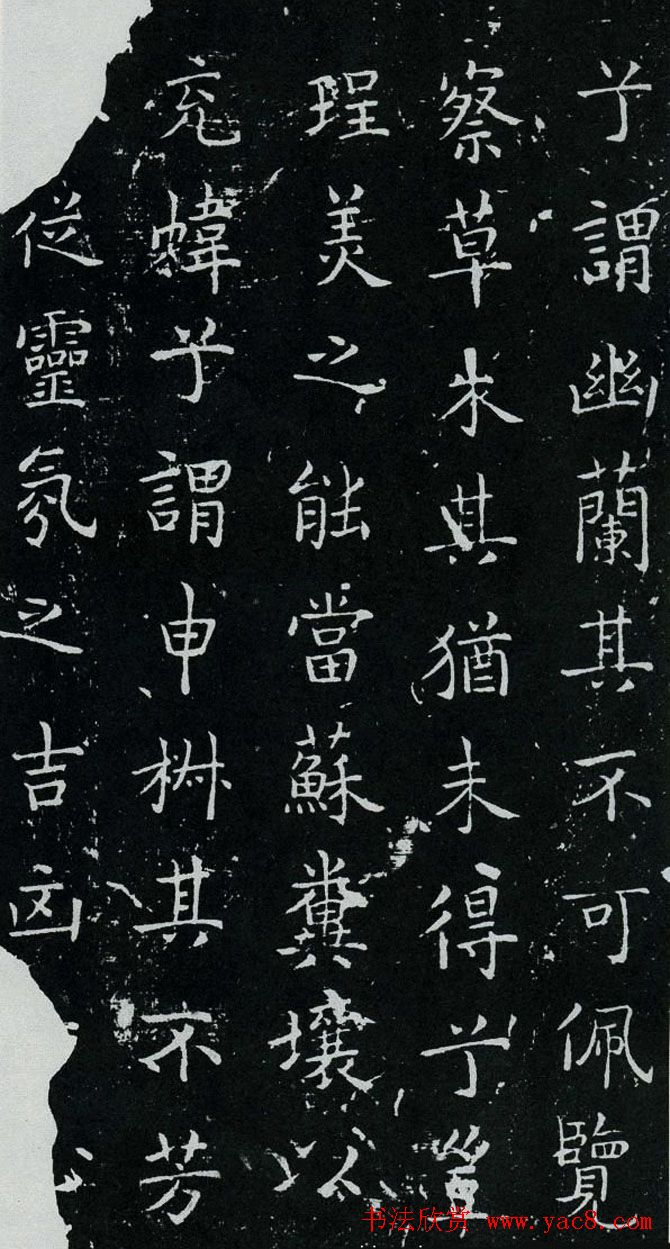 兮謂幽蘭其不可佩覽
察草木其猶未得兮豈
珵美之能當蘇糞壤以
充幃兮謂申椒其不芳
從靈氛之吉凶
书法欣赏 www.yac8.com